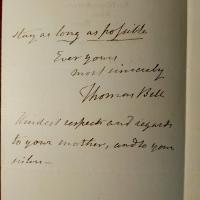 stay as long as possible
Ever yours
most sincerely
Thomas Bell
Kindest respects and regards
to your mother, and to your
sisters—